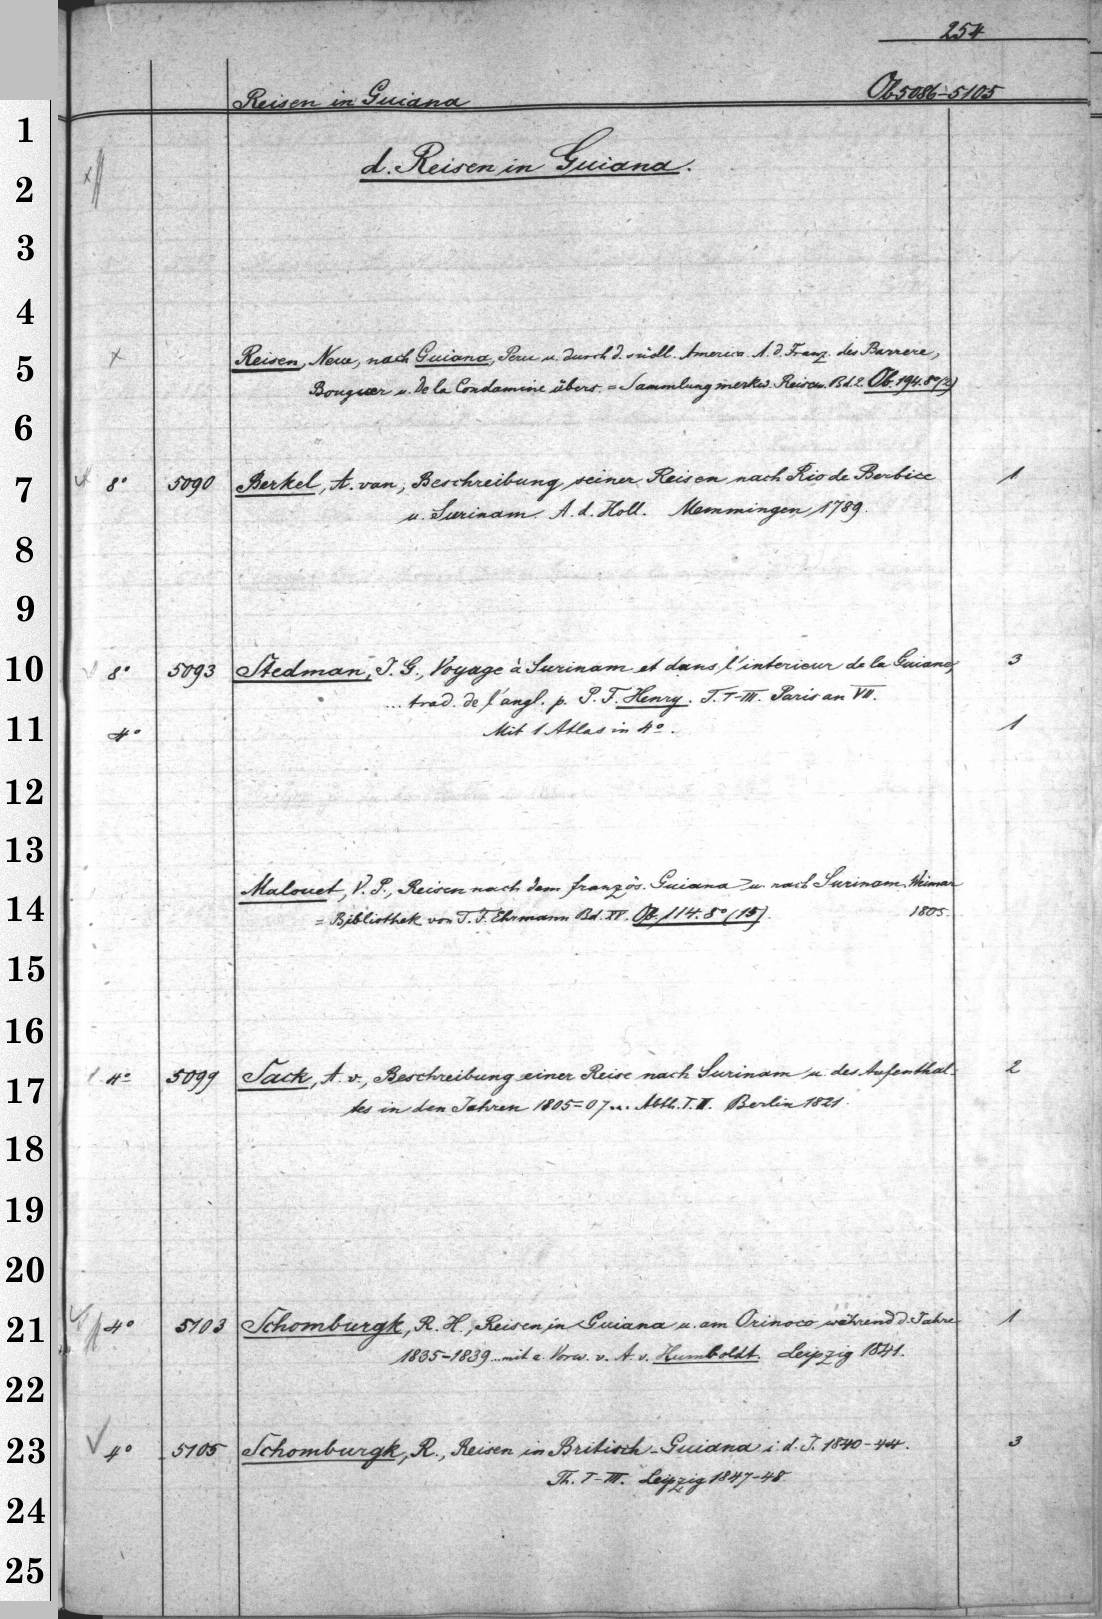 254
Reisen in Guiana Ob 5086-5105
1
d. Reisen in Guiana.
2
3
4
5 Reisen, Neue, nach Guiana, Peru u. durch d. südl. America. A. d. Franz. des Barrere,
Bouguer u. De la Condamine übers. = Sammlung merkw. Reisen. Bd. 2. Ob. 194. 8° (2)
6
7 8° 5090 Berkel, A. van, Beschreibung seiner Reisen nach Rio de Berbice 1
u. Surinam. A. d. Holl. Memmingen 1789.
8
9
10 8° 5093 Stedman, J. G., Voyage à Surinam et dans l'interieur de la Guiane, 3
... trad. de l'angl. p. P. F. Henry. T. I-III. Paris an VII.
11 4° Mit 1 Atlas in 4°. 1
12
13
Malouet, V. P., Reisen nach dem französ. Guiana u. nach Surinam. Weimar
14 = Bibliothek von T. F. Ehrmann Bd. XV. Ob. 114. 8° (15). 1805.
15
16
17 4° 5099 Sack, A. v., Beschreibung einer Reise nach Surinam u. des Aufenthal- 2
tes in den Jahren 1805-07... Abth. I. II. Berlin 1821.
18
19
20
21 4° 5103 Schomburgk, R. H., Reisen in Guiana u. am Orinoco während d. Jahre 1
1835-1839... mit e. Vorw. v. A. v. Humboldt. Leipzig 1841.
22
23 4° 5105 Schomburgk, R., Reisen in Britisch-Guiana i. d. J. 1840-44. 3
Th. I-III. Leipzig 1847-48.
24
25